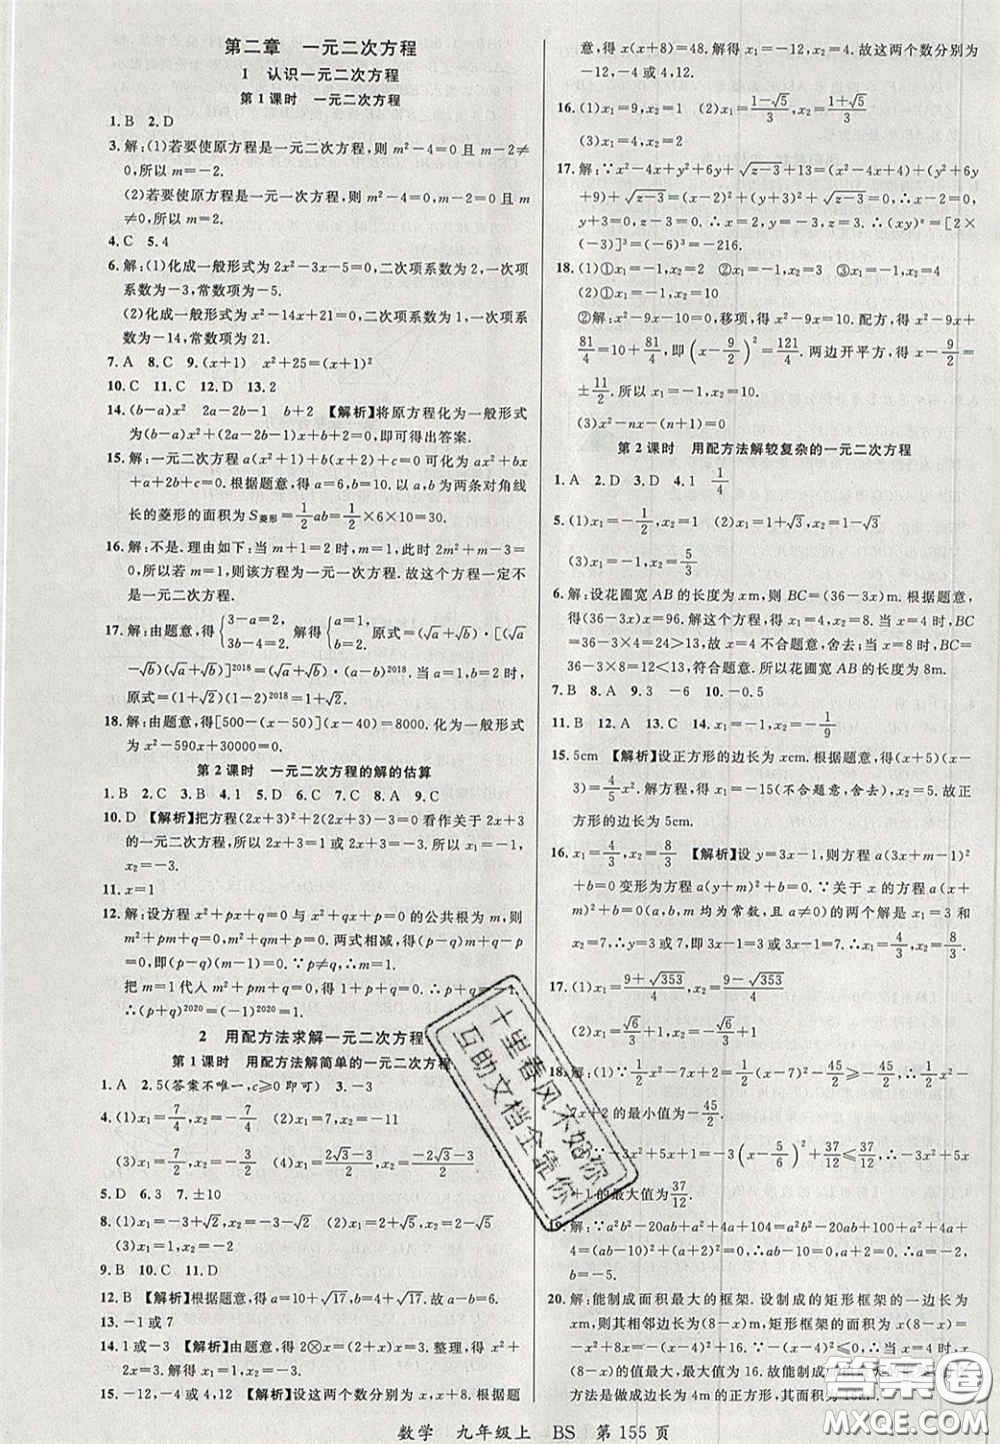 第二章　一元二次方程
1　认识一元二次方程
第1课时　一元二次方程
1.B　2.D
3.解:(1)若要使原方程是一元二次方程,则 m²－4=0且 m－2≠
0,所以 m=－2.
(2)若要使原方程是一元一次方程,则 m²－4=0,m－2=0
,所以 m=2.
4.C　5.4
6.解:(1)化成一般形式为 2x²－3x－5=0,二次项系数为2,一次项
系数为－3,常数项为－5.
(2)化成一般形式为 x²－14x+21=0,二次项系数为1,一次项系
数为－14,常数项为21.
7.A　8.C　9.(x+1)　x²+25=(x+1)²
10.C　11.C　12.D　13.2
14.(b－a)x²　2a－2b－1　b+2　【解析】将原方程化为一般形式
为(b－a)x²+(2a－2b－1)x+b+2=0,即可得出答案.
15.解:一元二次方程 a(x²+1)+b(x+2)+c=0可化为 ax²+bx
+a+2b+c=0.根据题意,得 a=6,b=10.以 a,b 为两条对角线
长的菱形的面积为 S菱形=1/2ab=1/2×6×10=30.
16.解:不是.理由如下:当 m+1=2 时,m=1,此时 2m²+m－3=
0,所以若 m=1,则该方程为一元一次方程.故这个方程一定不
是一元二次方程.
17.解:由题意,得{3－a=2, 3b－4=2. 解得{a=1, b=2. 原式=(√a+√b)·[(√a
－√b)(√a+√b)]²⁰¹⁸=(√a+√b)·(a－b)²⁰¹⁸.当 a=1,b=2时,
原式=(1+√2)(1－2)²⁰¹⁸=1+√2.
18.解:由题意,得[500－(x－50)](x－40)=8000.化为一般形式
为 x²－590x+30000=0.
第2课时　一元二次方程的解的估算
1.B　2.C　3.C　4.1　5.D　6.C　7.C　8.A　9.C
10.D　【解析】把方程(2x+3)²+2(2x+3)－3=0看作关于2x+3
的一元二次方程,所以 2x+3=1或 2x+3=－3.所以 x₁=－1,
x₂=－3.
11.x=1
12.解:设方程 x²+px+q=0 与 x²+qx+p=0 的公共根为 m,则
m²+pm+q=0,m²+qm+p=0.两式相减,得(p－q)m+q－p=
0,即(p－q)m=p－q.∵p≠q,∴p－q≠0.∴m=1.
把 m=1代入 m²+pm+q=0,得1+p+q=0.∴p+q=
－1.∴(p+q)²⁰²⁰=(－1)²⁰²⁰=1.
2　用配方法求解一元二次方程
第1课时　用配方法解简单的一元二次方程
1.A　2.5(答案不唯一,c≥0即可)　3.－3
4.(1)x₁=7/4,x₂=－7/4　(2)x₁=7,x₂=－11
(3)x₁=7/2,x₂=－1/2　(4)x₁=(2√3－3)/2,x₂=(－2√3－3)/2
5.D　6.3　7.±10
8.(1)x₁=－3+√2,x₂=－3－√2　(2)x₁=－2+√5,x₂=－2－√5
(3)x₁=1,x₂=－3
9.B　10.C　11.D
12.B　【解析】根据题意,得 a=10+√17,b=4+√17,∴a>b.
13.－1或7
14.1或－3　【解析】由题意,得 2⊗x=4×2+2x=2,整理,得 x²+
2x=3.解得 x=1或 x=－3.
15.－12,－4或4,12　【解析】设这两个数分别为 x,x+8.根据题
意,得 x(x+8)=48.解得 x=－12或 x=4.故这两个数分别为
－12,－4或 4,12.
16.(1)x₁=9,x₂=1　(2)x₁=(1－√5)/3,x₂=(1+√5)/3
(3)x₁=x₂=4
17.解:∵x²－4x+y²+6y+√(z－3)+13=(x²－4x+4)+(y²+6y
+9)+√(z－3)=(x－2)²+(y+3)²+√(z－3)=0,∴x－2=0,
y+3=0,z－3=0.∴x=2,y=－3,z=3.∴(xy)ᶻ=[2×
(－3)]³=(－6)³=－216.
18.(1)①x₁=1,x₂=2　②x₁=x₂=1　③x₁=－1,x₂=4
(2)①x₁=－1,x₂=10
②解:x²－9x－10=0,移项,得 x²－9x=10.配方,得 x²－9x+
81/4=10+81/4,即(x－9/2)²=121/4.两边开平方,得 x－9/2=
±11/2.所以 x₁=－1,x₂=10.
(3)x²－nx－(n+1)=0
第2课时　用配方法解较复杂的一元二次方程
1.A　2.D　3.D　4.1　1/4
5.(1)x₁=－1/2,x₂=1　(2)x₁=1+√3,x₂=1－√3
(3)x₁=－1,x₂=5/3
6.解:设花圃宽 AB 的长度为 xm,则 BC=(36－3x)m.根据题意,
得 x(36－3x)=96.解这个方程,得 x₁=4,x₂=8.当 x=4 时,
BC=36－3×4=24>13,故 x=4不符合题意,舍去;当 x=8时,
BC=36－3×8=12<13,符合题意.所以花圃宽 AB 的长度为 8m.
7.B　8.A　9.3　－6　10.－0.5
11.B　12.A　13.C　14.x₁=－1,x₂=－1/9
15.5cm　【解析】设正方形的边长为 xcm.根据题意,得(x－3)(x
－3)=4/5x².解得 x₁=－15(不符合题意,舍去),x₂=5.故正
方形的边长为5cm.
16.x₁=4/3,x₂=8/3　【解析】设 y=3x－1,则方程 a(3x+m－1)²
+b=0变形为方程 a(y+m)²+b=0.∵关于 x 的方程 a(x+m)²
+b=0(a,b,m 均为常数,且 a≠0)的两个解是 x₁=3和
x₂=7,∴y=3或 y=7.∴3x－1=3或 7.∴x₁=4/3,x₂=8/3.
17.(1)x₁=(9+√353)/4,x₂=(9－√353)/4
(2)x₁=√6/3+1,x₂=－√6/3+1
2x²－7x+2的最小值为－
+1的最大值为37/12.
20.解:能制成面积最大的框架.设制成的矩形框架的一边长为
xm,则其相邻边长为(8－x)m,矩形框架的面积为 x(8－x)=
方法是做成边长为4m的正方形框架.
数学　九年级上　BS　第155页
十里春风不如你
互助文档全靠你
答案圈
MXQE.COM